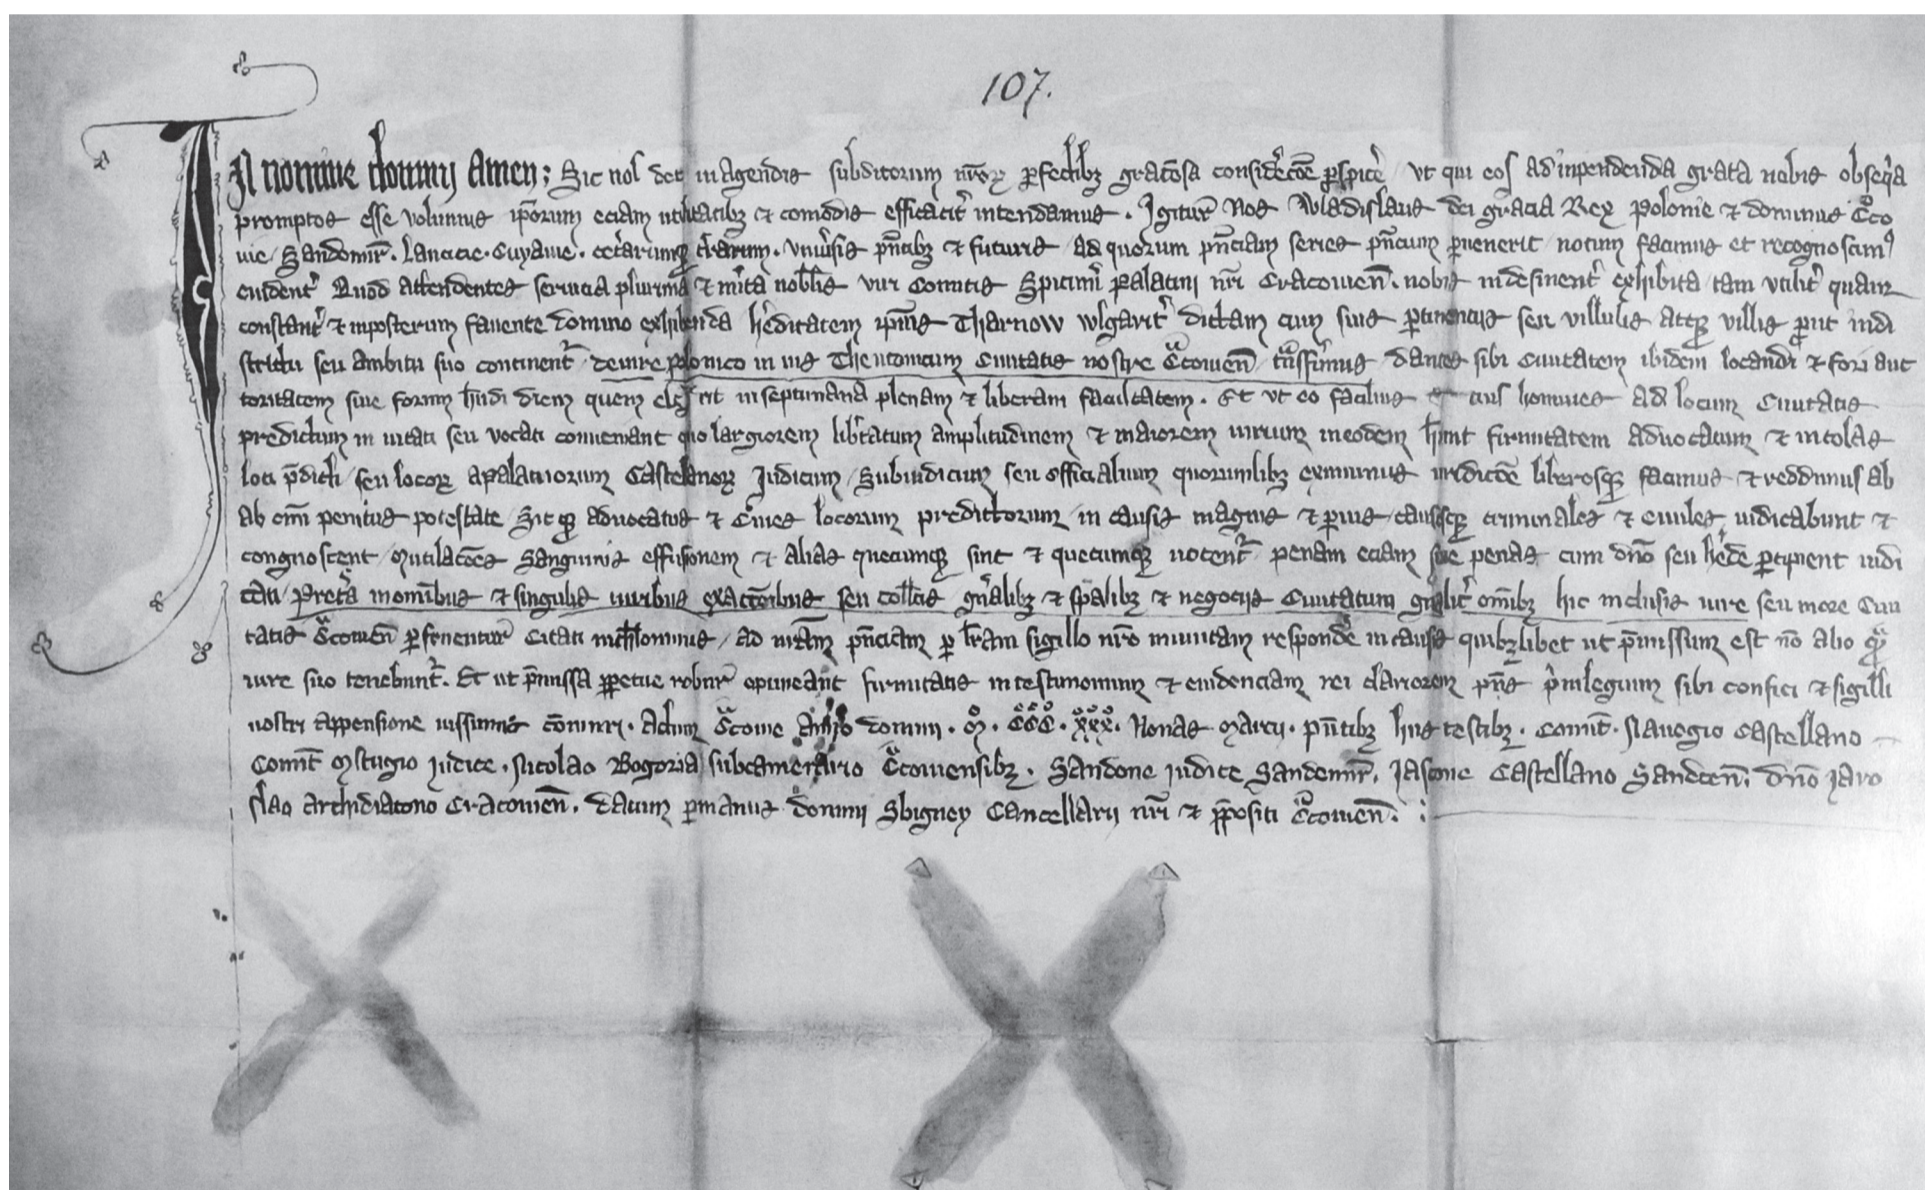 107.
In nomine domini Amen; Sic nos decet in agendis subditorum nr̄orꝝ ꝑfectibꝫ grac̄osa consid̓ac̄oe ꝑspic̓e / vt qui eos ad inpendenda grata nobis obseq̓a
promptos esse volumus ip̄orum eciam utilitatibꝫ ⁊ comodis efficacit̓ intendamus . Igitur Nos Wladislaus dei gracia Rex Polonie ⁊ dominus C̄co
uie / Sandomir̄ . Lancicie . Cuyauie . cet̓arumqꝫ t̓rarum . vniu̓sis pn̄tibꝫ ⁊ futuris / ad quorum pn̄ciam series pn̄cium ꝑuenerit / notum facimus et recognoscimꝰ
euident̓ Quod attendentes seruicia plurima ⁊ m̓ita nobilis viri Comitis Spicim̓i palatini nr̄i Cracouien̄ . nobis indesinent̓ exhibita / tam vtilit̓ quam
constant̓ ⁊ inposterum fauente domino exhibenda h̓editatem ip̄ius Tharnow wlgarit̓ dictam cum suis ꝑtinencijs seu villulis atqꝫ villis ꝓut in di
strictu seu ambitu suo continent̄ de iure polonico in ius Theutonicum Ciuitatis nostre C̄couien̄ t̄nsf̓imus / dantes sibi Ciuitatem ibidem locandi ⁊ fori auc
toritatem siue forum h̄ndi diem quem eleg̓it in septimana plenam ⁊ liberam facultatem . Et vt eo facilius eius homines ad locum Ciuitatis
predictum in uitati seu vocati conueniant quo largiorem lib̓tatum amplitudinem ⁊ maiorem uirium in eodem h̄nt firmitatem aduocatum ⁊ incolas
loci p̄dicti / seu locorꝝ a palatinorum Castellanorꝝ Iudicum / Subiudicum seu officialium quorumlibꝫ eximimus iurdic̄oe liberosqꝫ facimus ⁊ reddimus ab
ab om̄i penitus potestate / Sic qꝫ aduocatus ⁊ C̓iues locorum predictorum in causis magnis ⁊ ꝑuis / causasqꝫ criminales ⁊ ciuiles iudicabunt ⁊
congnoscent / Mutilac̄oes Sanguinis effusionem ⁊ alias quecunqꝫ sint ⁊ quecumqꝫ uocent̄ penam eciam siue penas cum dn̄o seu h̓ede ꝑcipient iudi
cati / Pret̓a in omibus ⁊ singulis iuribus exacc̄onibus seu coll̄cis gn̓alibꝫ ⁊ sp̄alibꝫ ⁊ negocijs Ciuitatum gn̓alit̓ om̄ibꝫ hic inclusis iure seu more Ciui
tatis C̄couien̄ ꝑfruentur̄ Citati nichilominus / ad nr̄am pn̄ciam ꝑ l̄ram sigillo nr̄o munitam respond̓e in causis quibꝫlibet ut p̄missum est n̄o alio qᷓ
iure suo tenebunt̄ . Et ut p̄missa ꝑpetue robur optineant firmitatis in testimonium ⁊ euidenciam rei clariorem pn̄s p̓uilegium sibi confici ⁊ sigilli
nostri appensione iussimus c̄ōmuniri . Actum C̄couie Anno domini . M̊ . C̊C̊C̊ . x̊x̊x̊ . Nonas Marcij . pn̄tibꝫ hijs testibꝫ . Comit̄ . Nauogio Castellano
Comit̄ Mstugio Iudice . Nicolao Bogoria subcamerario C̄couiensibꝫ . Sandone iudice Sandomir̄ . Jascone Castellano Sandecen̄ . Dn̄o Jaro
slao archidiacono Cracouien̄ . datum ꝑ manus domini Sbigney Cancellarij nr̄i ⁊ p̄positi C̄couien̄ .